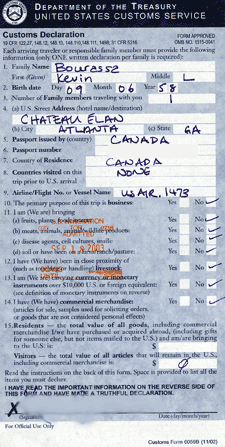 DEPARTMENT OF THE TREASURY
UNITED STATES CUSTOMS SERVICE
Customs Declaration
FORM APPROVED
19 CFR 122.27, 148.12, 148.13, 148.110, 148.111, 1498; 31 CFR 5316
OMB NO. 1515-0041
Each arriving traveler or responsible family member must provide the following
information (only ONE written declaration per family is required):
1. Family Name Bourassa
First (Given) Kevin Middle L
2. Birth date Day 09 Month 06 Year 58
3. Number of Family members traveling with you 1
4. (a) U.S. Street Address (hotel name/destination)
CHATEAU ELAN
(b) City ATLANTA (c) State GA
5. Passport issued by (country) CANADA
6. Passport number
7. Country of Residence CANADA
8. Countries visited on this NONE
trip prior to U.S. arrival
9. Airline/Flight No. or Vessel Name US AIR, 1473
10. The primary purpose of this trip is business: Yes No
11. I am (We are) bringing
(a) fruits, plants, food, insects: Yes No
(b) meats, animals, animal/wildlife products: Yes No
(c) disease agents, cell cultures, snails: Yes No
(d) soil or have been on a farm/ranch/pasture: Yes No
SEP 18 2003
12. I have (We have) been in close proximity of
(such as touching or handling) livestock: Yes No
13. I am (We are) carrying currency or monetary
instruments over $10,000 U.S. or foreign equivalent: Yes No
(see definition of monetary instruments on reverse)
14. I have (We have) commercial merchandise: Yes No
(articles for sale, samples used for soliciting orders,
or goods that are not considered personal effects)
15. Residents — the total value of all goods, including commercial
merchandise I/we have purchased or acquired abroad, (including gifts
for someone else, but not items mailed to the U.S.) and am/are bringing
to the U.S. is: $
Visitors — the total value of all articles that will remain in the U.S.,
including commercial merchandise is: $ 0
Read the instructions on the back of this form. Space is provided to list all the
items you must declare.
I HAVE READ THE IMPORTANT INFORMATION ON THE REVERSE SIDE OF
THIS FORM AND HAVE MADE A TRUTHFUL DECLARATION.
X
(Signature) Date (day/month/year)
For Official Use Only
Customs Form 6059B (11/02)